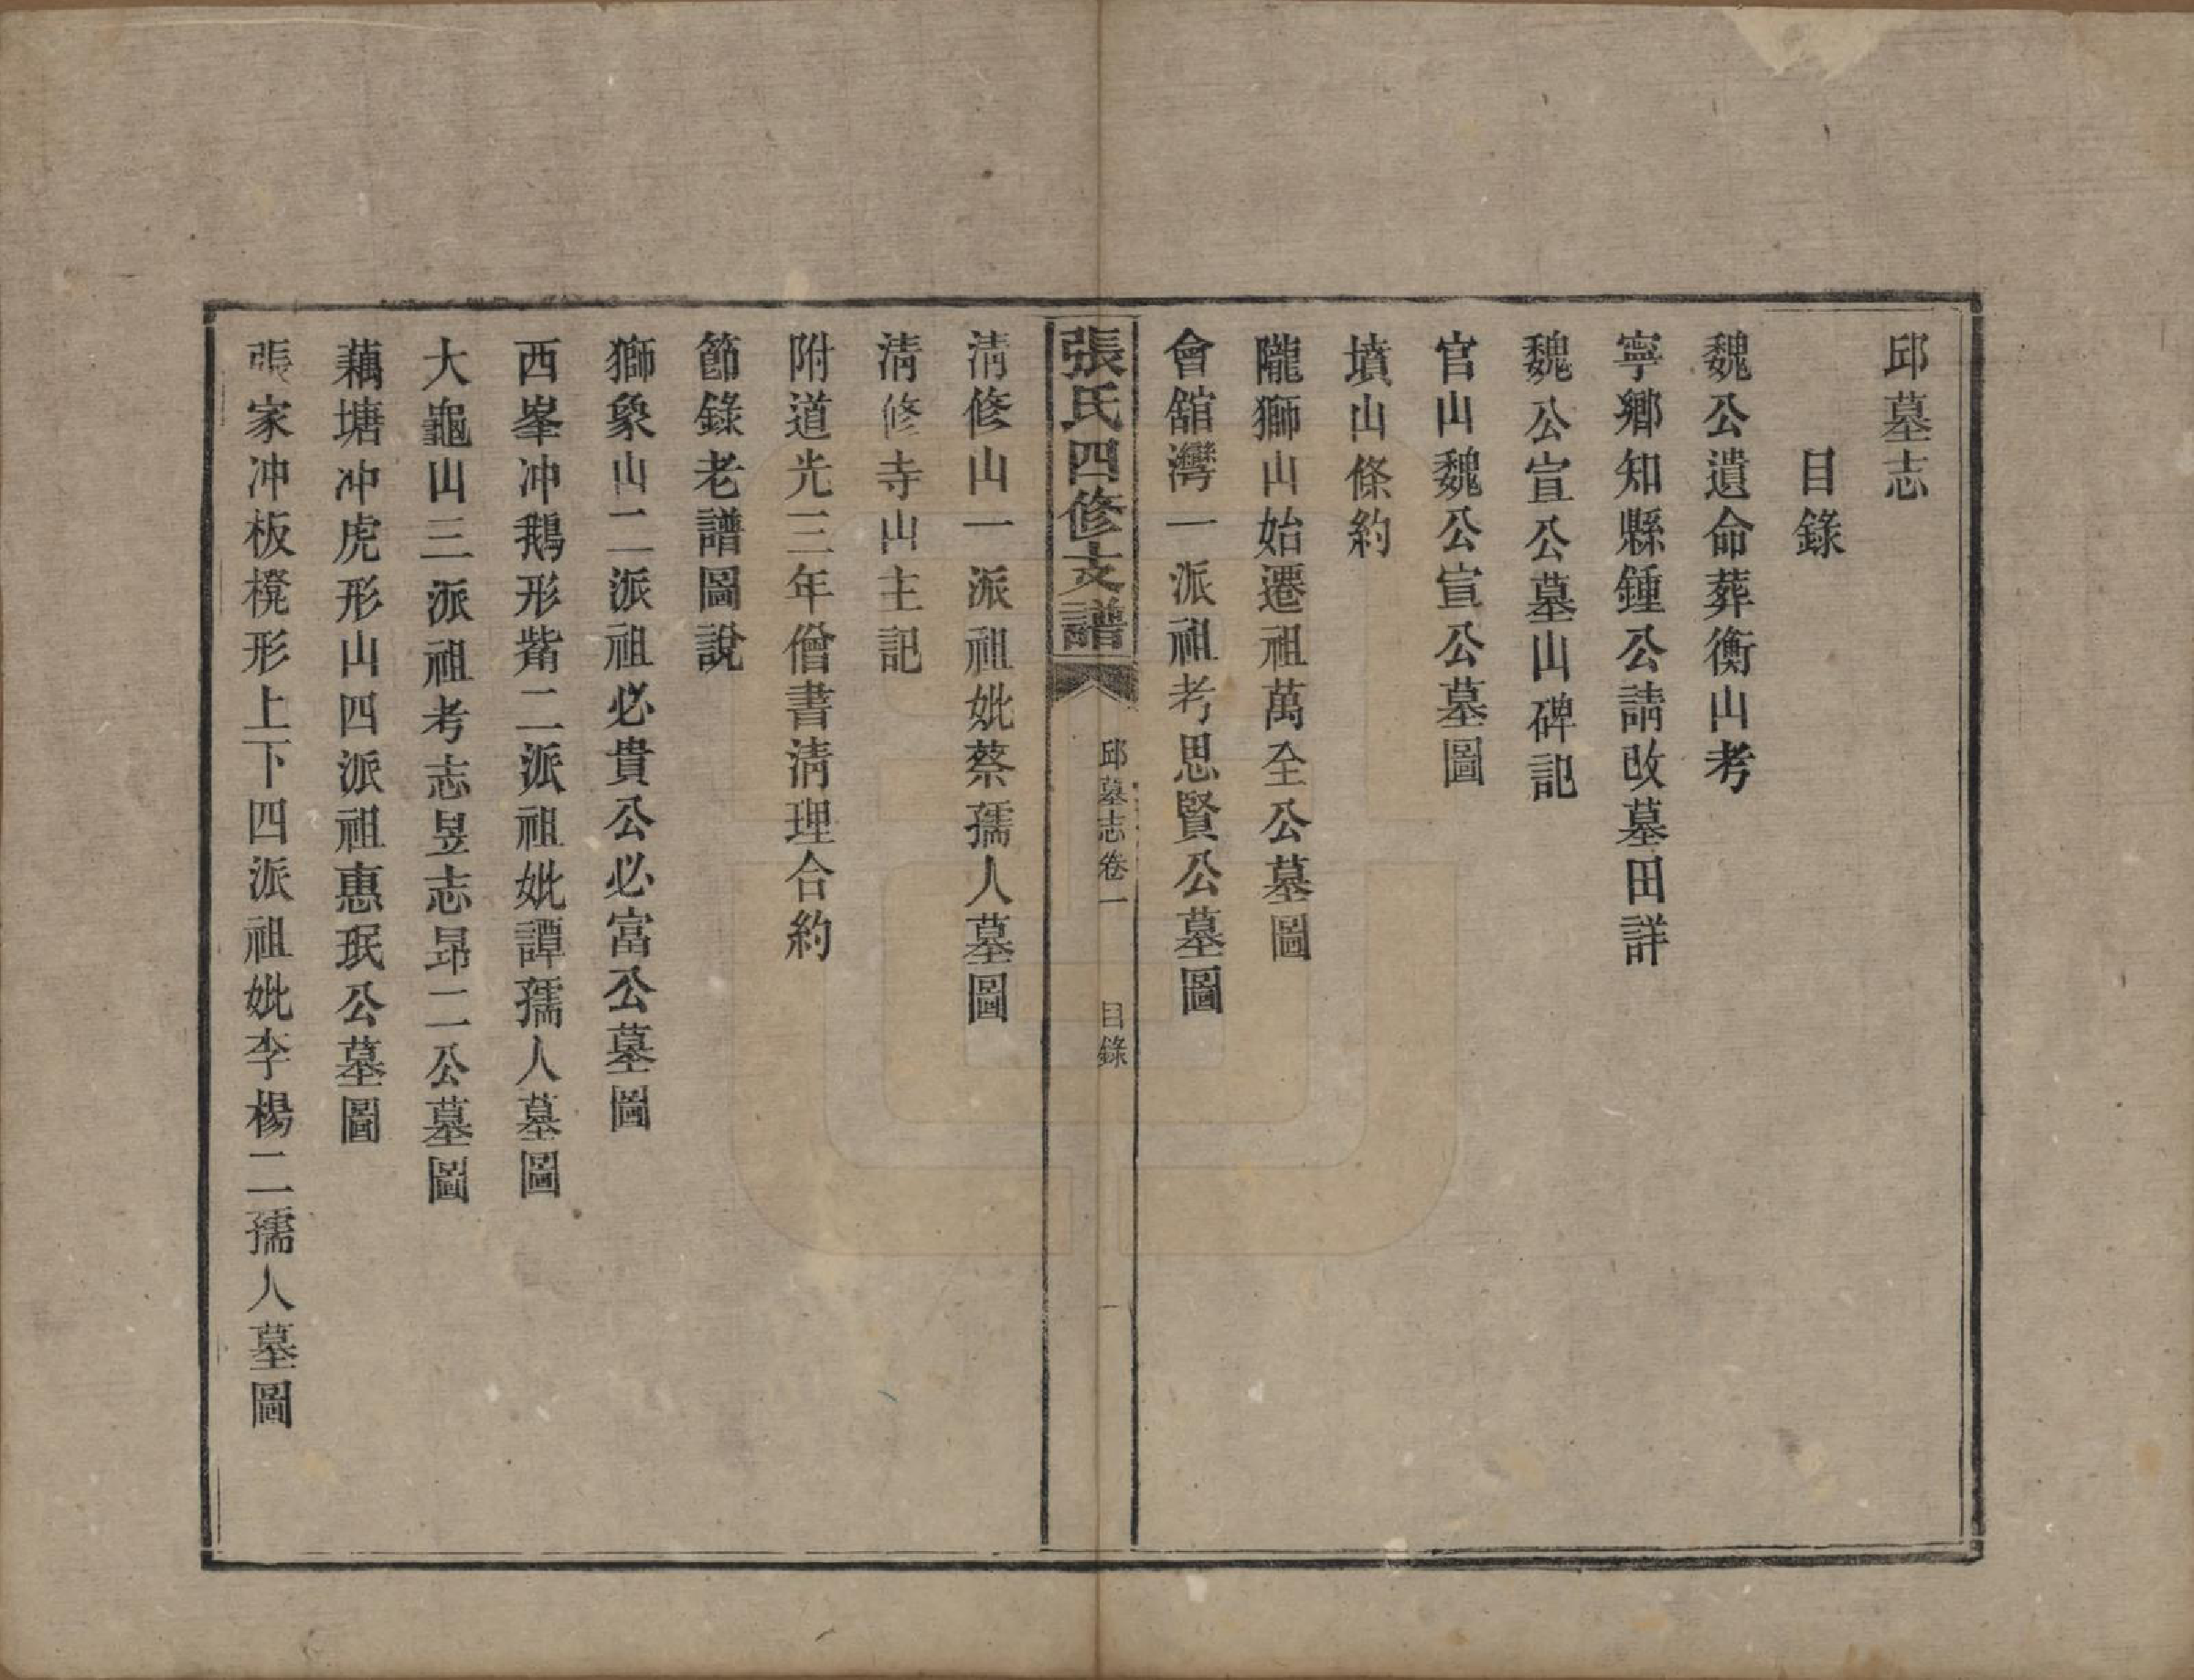 邱墓志
目錄
魏公遺命葬衡山考
寧鄉知縣鍾公請改墓田詳
魏公宣公墓山碑記
官山魏公宣公墓圖
墳山條約
隴獅山始遷祖萬全公墓圖
會舘灣一派祖考思賢公墓圖
張氏四修支譜
邱墓志卷一
目錄
一
清修山一派祖妣蔡孺人墓圖
清修寺山主記
附道光三年僧書清理合約
節錄老譜圖說
獅象山二派祖必貴公必富公墓圖
西峯冲鵝形觜二派祖妣譚孺人墓圖
大龜山三派祖考志昱志昂二公墓圖
藕塘冲虎形山四派祖惠珉公墓圖
張家冲板櫈形上下四派祖妣李楊二孺人墓圖